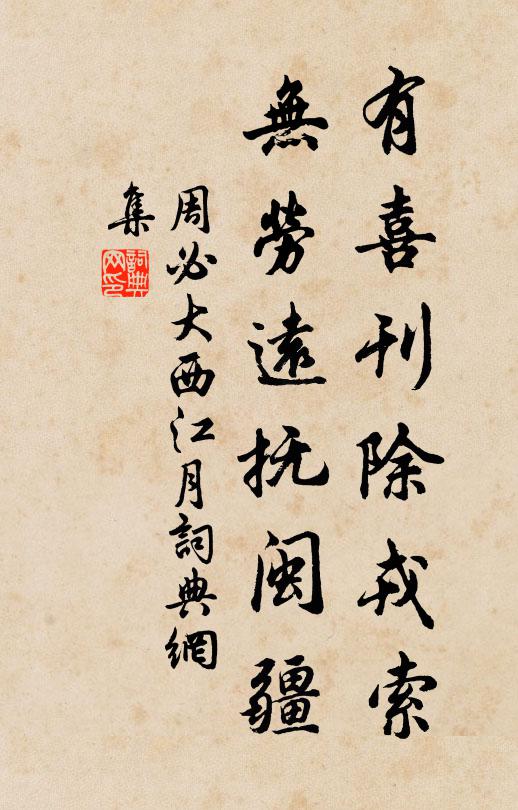 有喜刊除戎索
無勞遠抚闽疆
周必大西江月詞典網
集
詞典网印